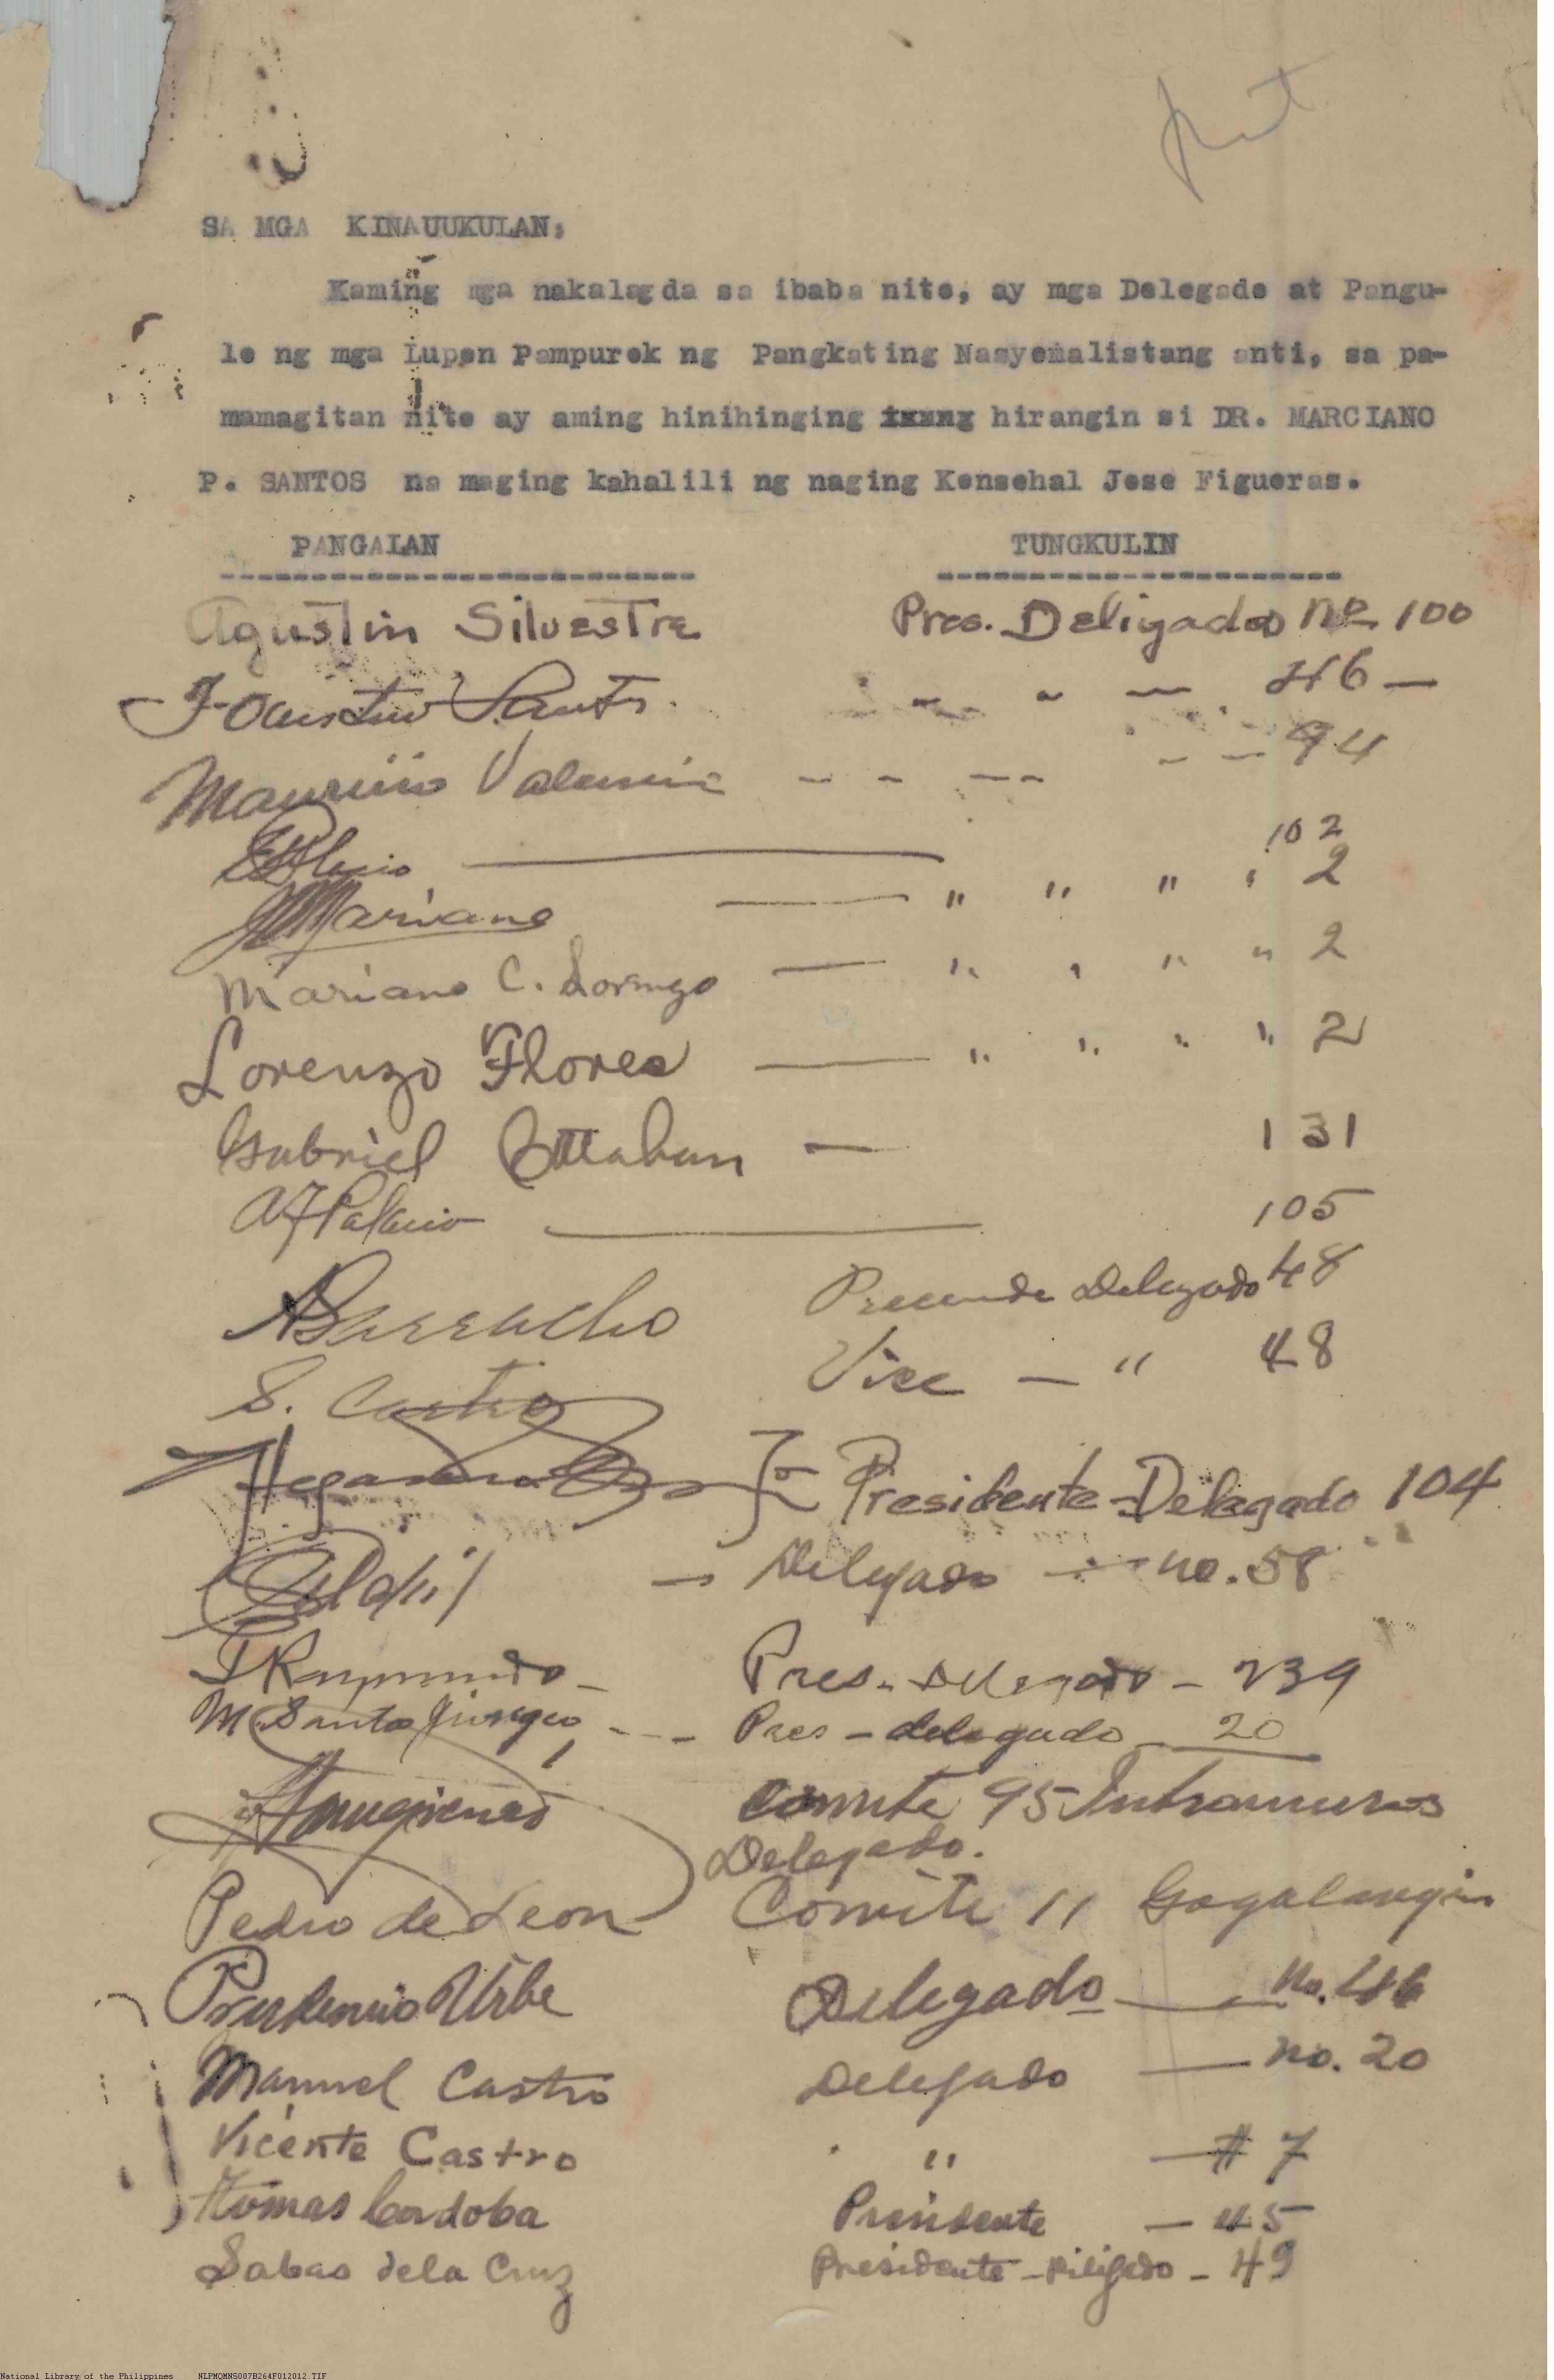 SA MGA KINAUUKULAN;
Kaming mga nakalagda sa ibaba nito, ay mga Delegado at Pangu-
lo ng mga Lupon Pampurok ng Pangkating Nasyonalistang anti, sa pa-
mamagitan nito ay aming hinihinging hirangin si DR. MARCIANO
P. SANTOS na maging kahalili ng naging Konsehal Jose Figueras.
PANGALAN TUNGKULIN
Agustin Silvestre Pres. Deligado No 100
Faustino Santos. " " " 46 —
Mauricio Valencia - - -- - - 94
102
Mariano — " " " " 2
Mariano C. — " " " " 2
Lorenzo Flores — " " " " 2
Gabriel — 131
A F Palacio — 105
Delegado 48
S. Castro Vice — " 48
Presidente - Delegado 104
— Delegado — no. 58
Raymundo — Pres. Delegado — 239
M. Santo -- - Pres - delegado 20
Comite 95 Intramuros
Delegado.
Pedro de Leon Comite 11 Gagalangin
Prudencio Uribe Delegado — No. 46
Manuel Castro Delegado — no. 20
Vicente Castro " — # 7
Tomas Cordoba Presidente — 45
Sabas dela Cruz Presidente - Diligado - 49
National Library of the Philippines NLPMQMNS007B264F012012.TIF